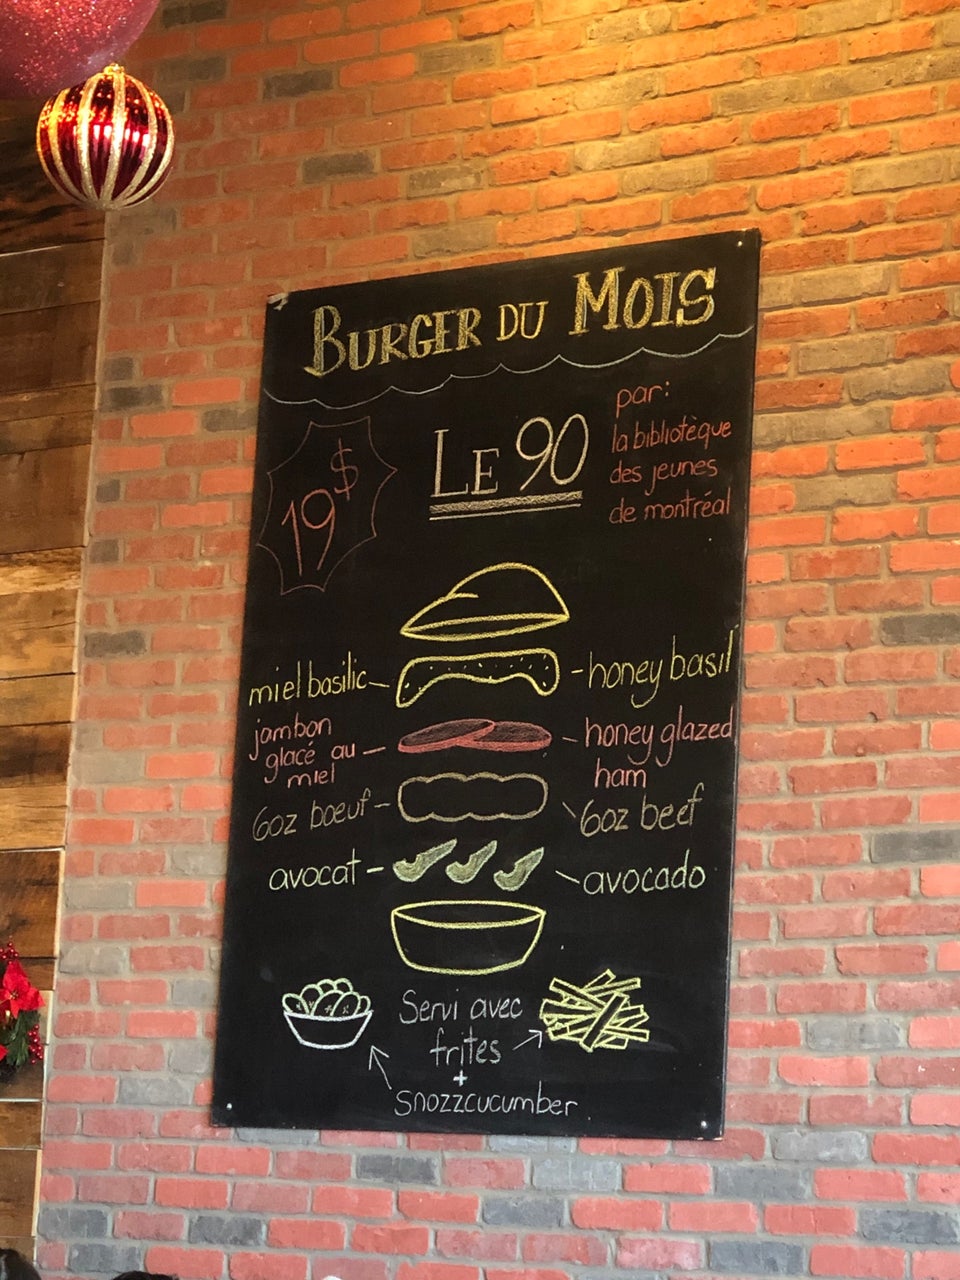 BURGER DU MOIS
19$
LE 90
par:
la bibliotèque
des jeunes
de montréal
miel basilic
honey basil
jambon
glacé au
miel
honey glazed
ham
6oz boeuf
6oz beef
avocat
avocado
Servi avec
frites
+
snozzcucumber